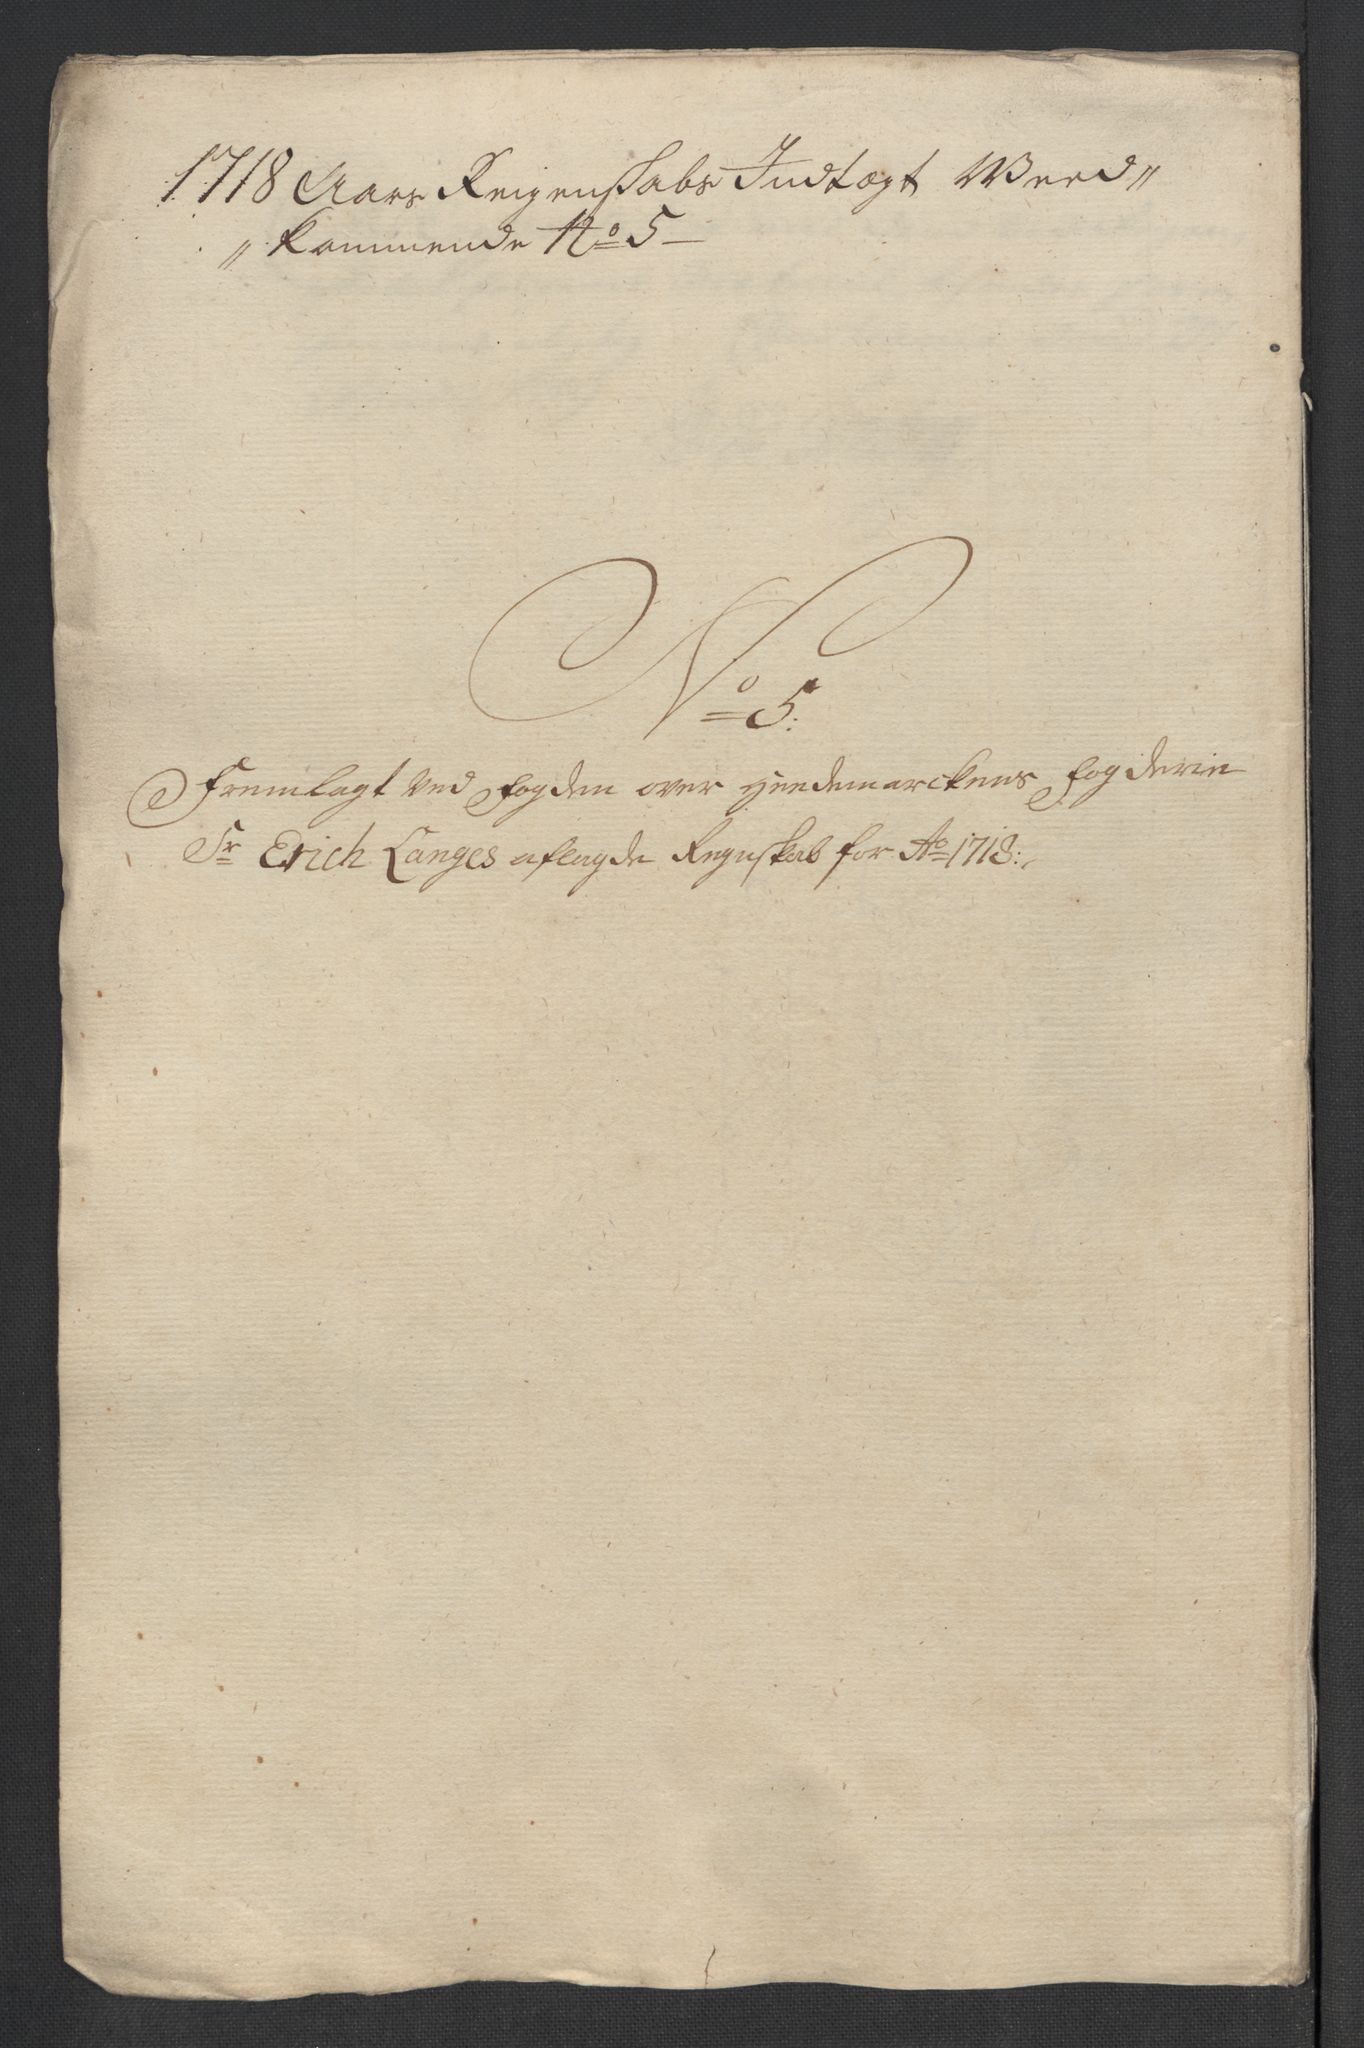 1718 Aars Reigenskabs Indtægt Weed„
„kommende No 5
No 5:
Fremlagt ved fogden over Heedemarckens fogderie
Sr Erich Langes aflagde Regnskab for Ao 1718: